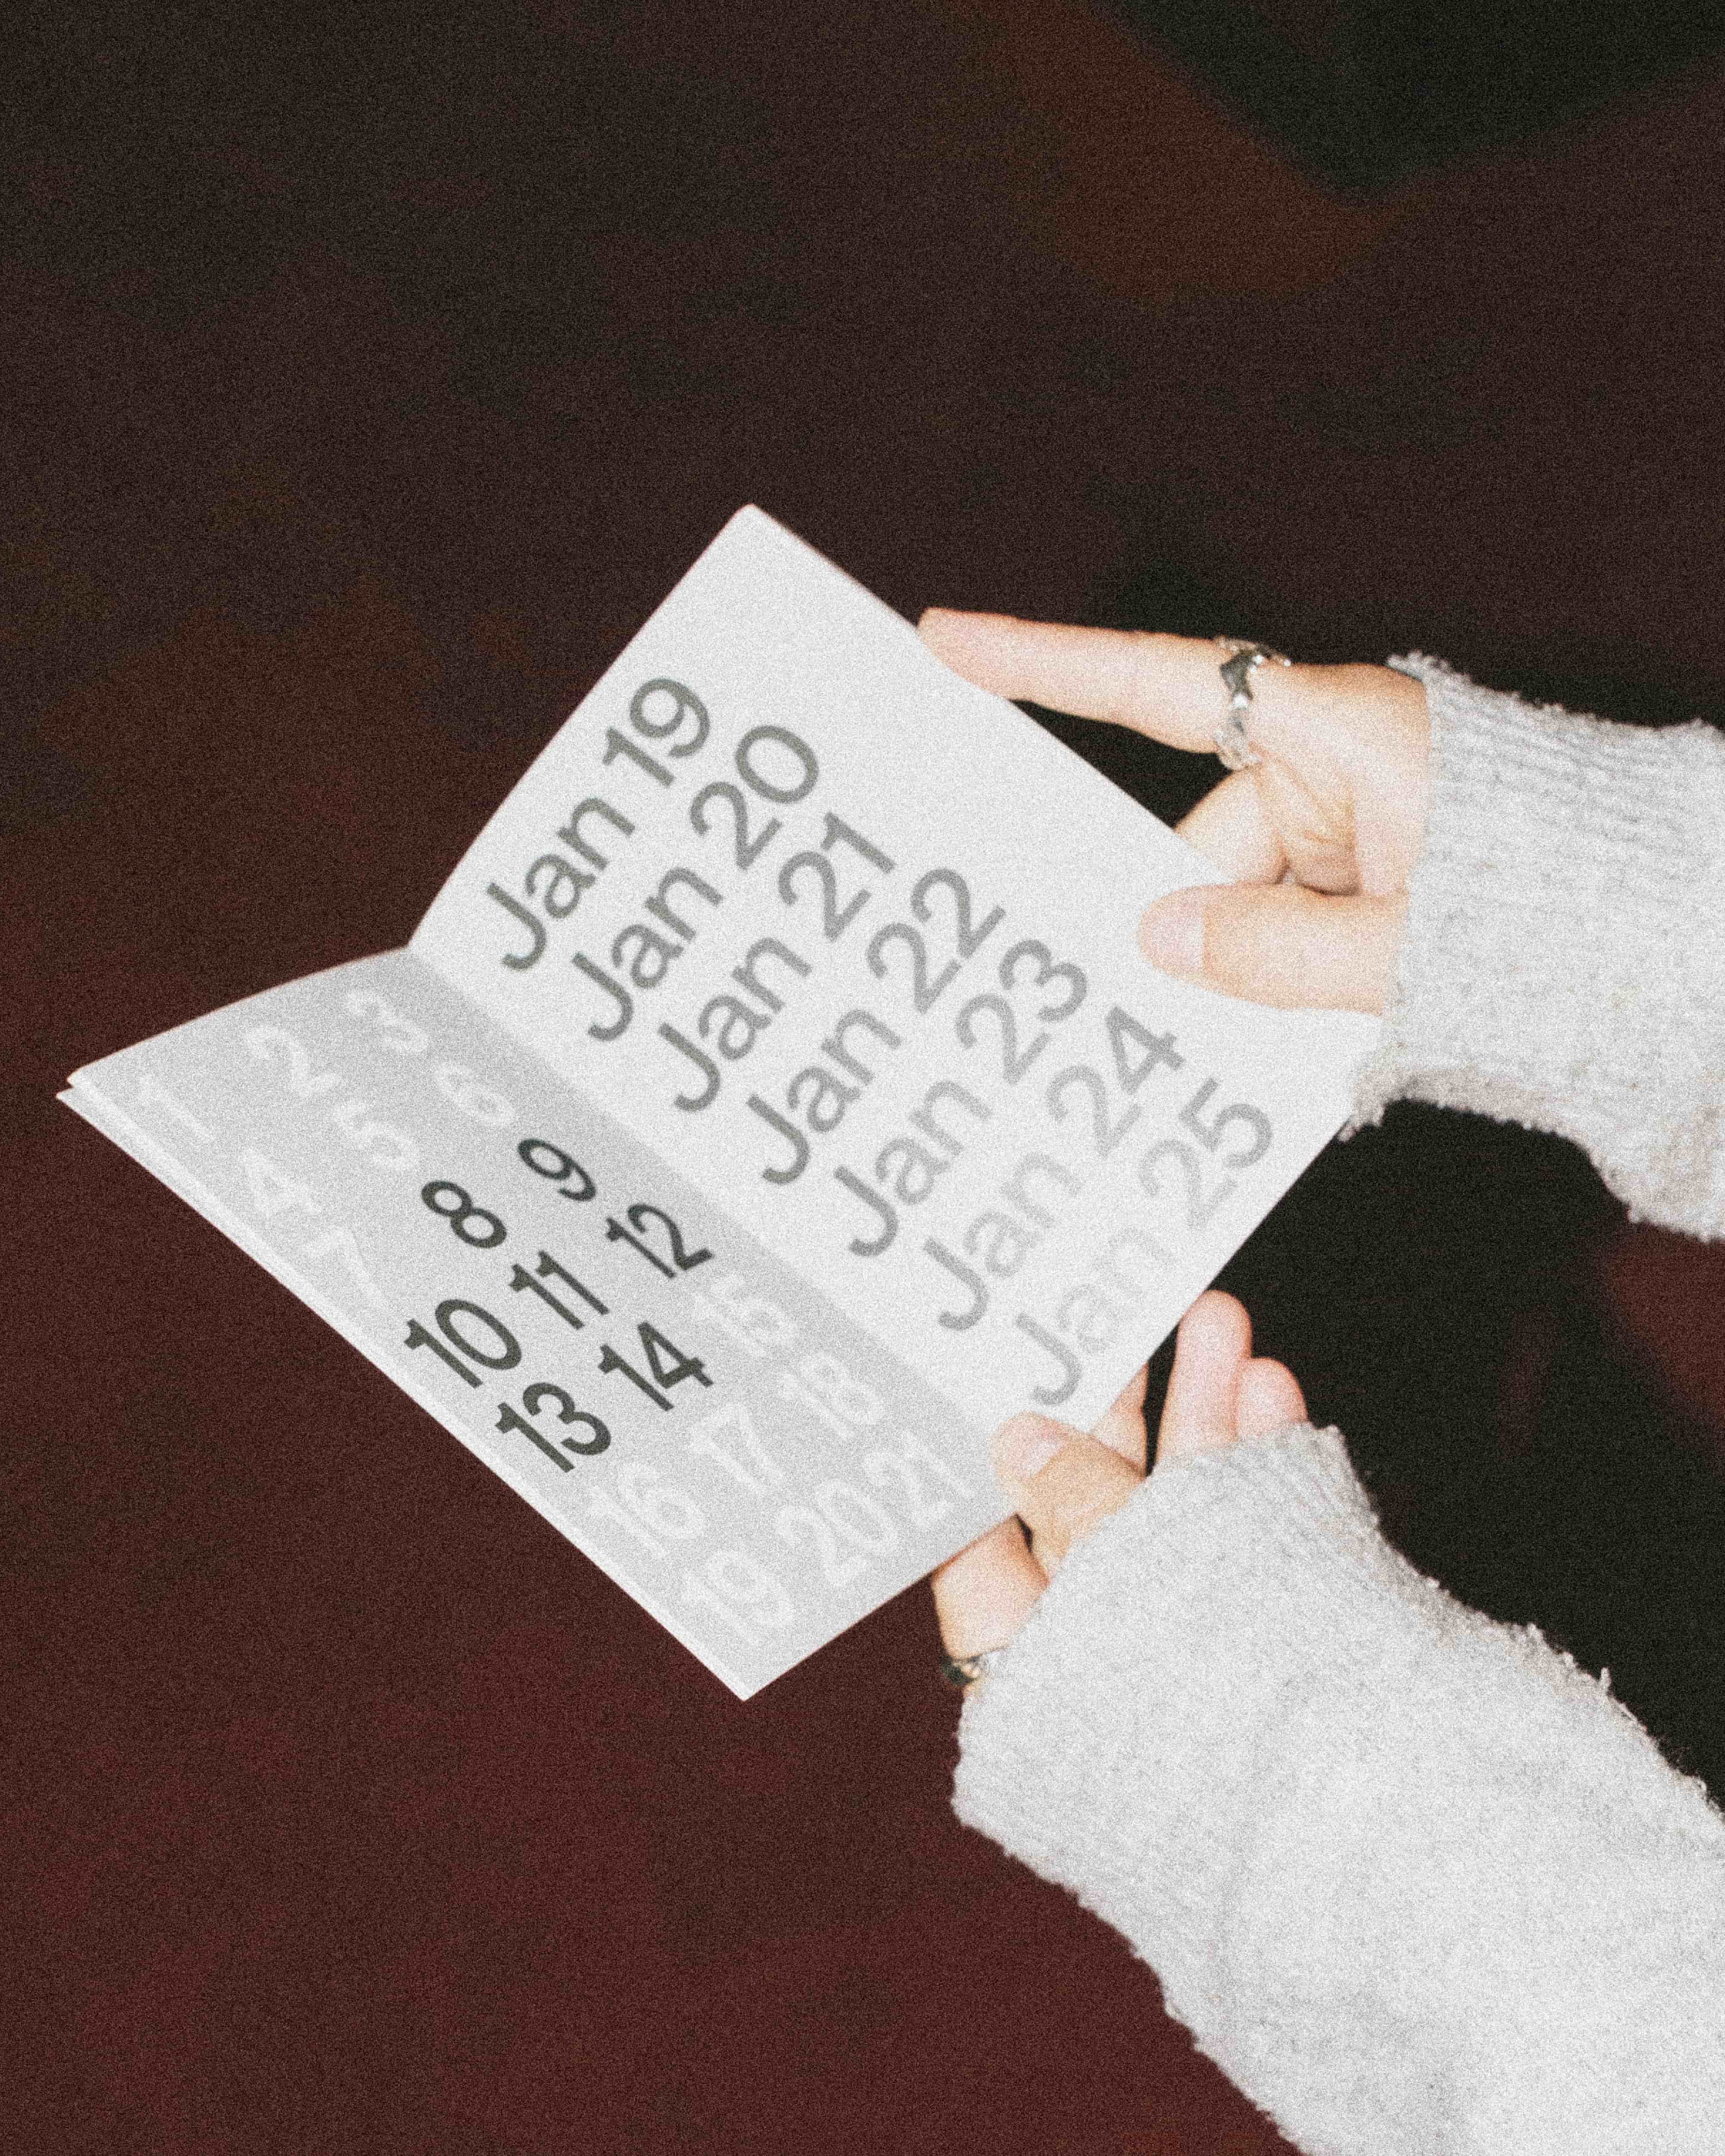 1 2 3
4 5 6
7 8 9
10 11 12
13 14 15
16 17 18
19 20 21
Jan 19
Jan 20
Jan 21
Jan 22
Jan 23
Jan 24
Jan 25